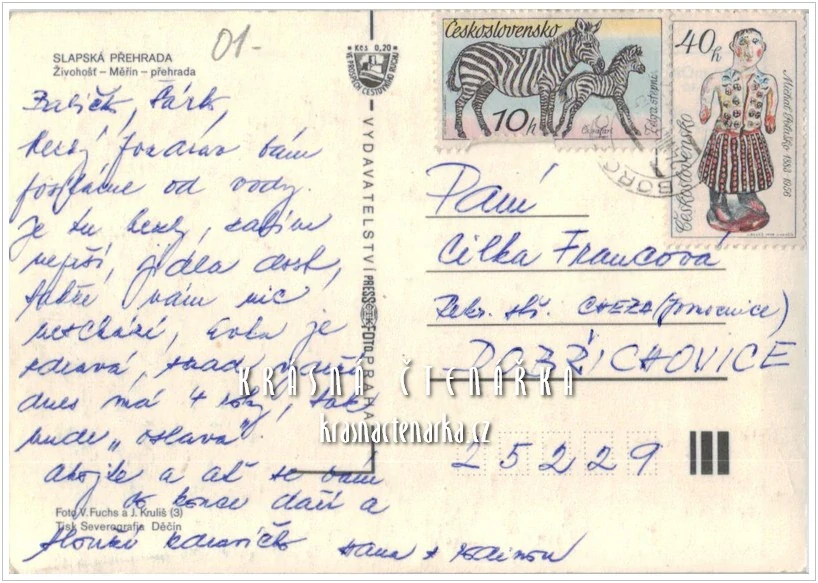 01-
SLAPSKÁ PŘEHRADA
Živohošť – Měřín – přehrada
Kčs 0,20
VE PROSPĚCH CESTOVNÍHO RUCHU
Československo
10h
40h
Československo
VYDAVATELSTVÍ PRESSFOTO PRAHA
Babičko, Šárko,
Hezký pozdrav vám
posíláme od vody.
Je tu hezky, zatím
neprší, jídla dost,
takže vám nic
neschází,
je
zdravá, snad
dnes má 4 roky, tak
bude „oslava".
Ahojte a ať se vám
do konce daří a
Hana s
Paní
Cilka Francová
Rekr. stř. CHEZA
DOBŘICHOVICE
25229
KRÁSNÁ ČTENÁŘKA
krasnactenarka.cz
Foto V. Fuchs a J. Kruliš (3)
Tisk Severografia Děčín